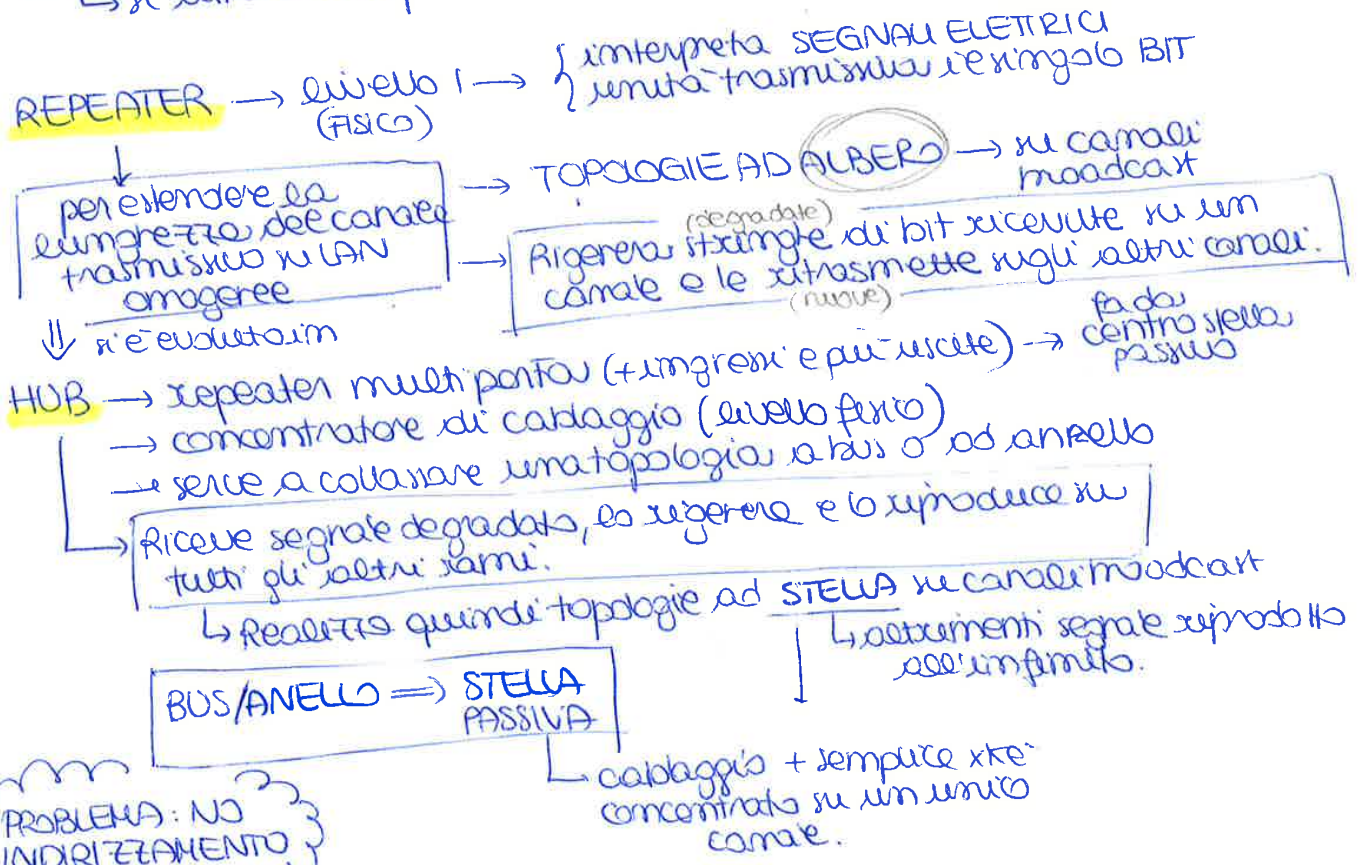 REPEATER → livello 1 → { interpreta SEGNALI ELETTRICI
unità trasmissiva è singolo BIT
(FISICO)
per estendere la
lunghezza del canale
trasmissivo su LAN
omogenee
→ TOPOLOGIE AD ALBERO → su canali
broadcast
(degradate)
→ Rigenera stringhe di bit ricevute su un
canale e le ritrasmette sugli altri canali.
(nuove)
⇓ si è evoluto in
HUB → repeater multiporta (+ ingressi e più uscite) → fa da
centro stella
passivo
→ concentratore di cablaggio (livello fisico)
→ serve a collassare una topologia a bus o ad anello
→ Riceve segnale degradato, lo rigenera e lo riproduce su
tutti gli altri rami.
↳ Realizza quindi topologie ad STELLA su canali broadcast
↳ altrimenti segnale riprodotto
all'infinito.
BUS/ANELLO ⇒ STELLA
PASSIVA
cablaggio + semplice xkè
concentrato su un unico
canale.
PROBLEMA: NO
INDIRIZZAMENTO